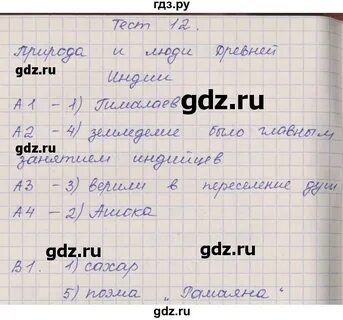 гдз.ру
Тест 12.
Природа и люди Древней
Индии
А1 - 1) Гималаев
gdz.ru
А2 - 4) земледелие было главным
занятием индийцев
А3 - 3) верили в переселение душ
gdz.ru
gdz.ru
А4 - 2) Ашока
В1. 1) сахар
gdz.ru
5) поэма „Рамаяна“